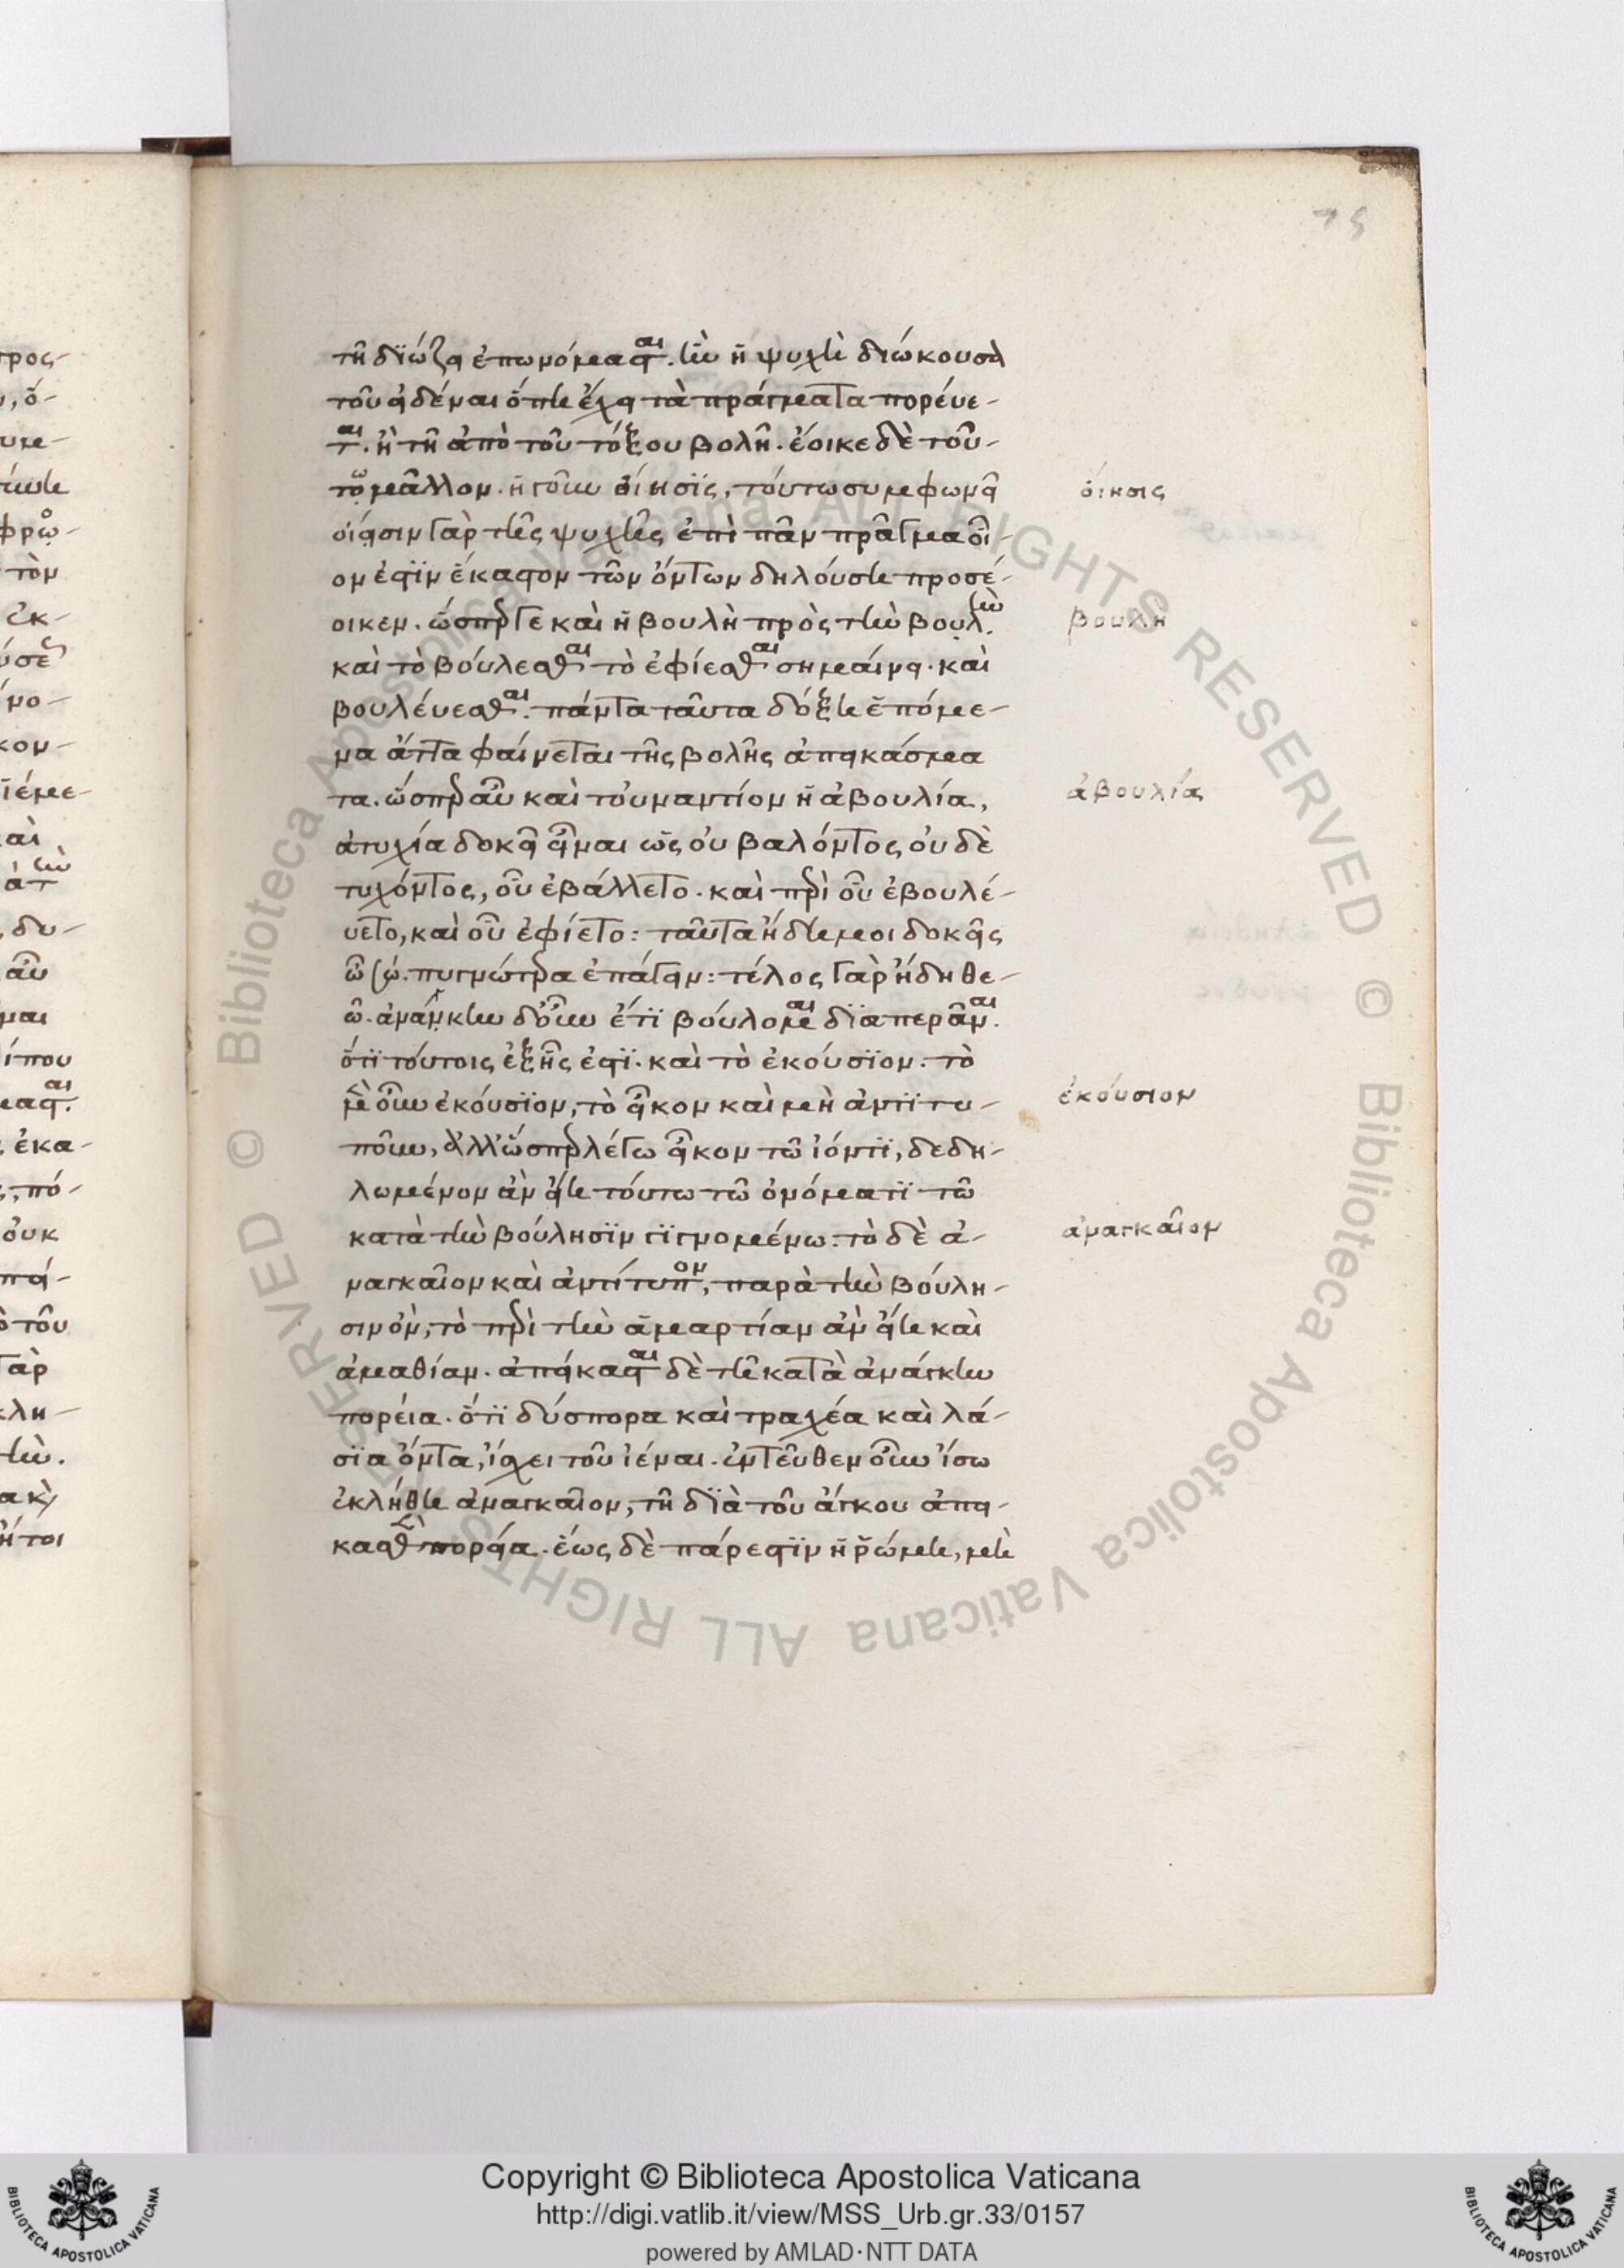 75
τῆ διώξει ἐπωνόμασται. ἣν ἡ ψυχὴ διώκουσα
τοῦ εἰδέναι ὅπη ἔχει τὰ πράγματα πορεύε-
ται. ἢ τῆ ἀπὸ τοῦ τόξου βολῆ. ἔοικε δὲ τού-
τω μᾶλλον. ἡ γοῦν οἴησις, τούτω συμφωνεῖ
οἶσιν γὰρ τῆς ψυχῆς ἐπὶ πᾶν πρᾶγμα οἷ-
ον ἐστὶν ἕκαστον τῶν ὄντων δηλούση προσέ-
οικεν. ὥσπερ γε καὶ ἡ βουλὴ πρὸς τὴν βουλὴν.
καὶ τὸ βούλεσθαι τὸ ἐφίεσθαι σημαίνει. καὶ
βουλέυεσθαι. πάντα ταῦτα δόξη ἑπόμε-
να ἄττα φαίνεται τῆς βολῆς ἀπεικάσμα
τα. ὥσπερ αὖ καὶ τοὐναντίον ἡ ἀβουλία,
ἀτυχία δοκεῖ εἶναι ὡς οὐ βαλόντος οὐδὲ
τυχόντος, οὗ ἐβάλλετο. καὶ περὶ οὗ ἐβουλέ-
υετο, καὶ οὗ ἐφίετο: ταῦτα ἤδη μοι δοκεῖς
ὦ σώ. πυκνώτερα ἐπάγειν: τέλος γὰρ ἤδη θε-
ῶ. ἀνάγκην δ' οὖν ἔτι βούλομαι διαπερᾶναι.
ὅτι τούτοις ἑξῆς ἐστι. καὶ τὸ ἑκούσιον. τὸ
μὲν οὖν ἑκούσιον, τὸ εἶκον καὶ μὴ ἀντιτυ-
ποῦν, ἀλλ' ὥσπερ λέγω εἶκον τῶ ἰόντι, δεδη-
λωμένον ἂν εἴη τούτω τῶ ὀνόματι τῶ
κατὰ τὴν βούλησιν γιγνομένω. τὸ δὲ ἀ-
ναγκαῖον καὶ ἀντίτυπον, παρὰ τὴν βούλη-
σιν ὂν, τὸ περὶ τὴν ἁμαρτίαν ἂν εἴη καὶ
ἀμαθίαν. ἀπείκασται δὲ τῆ κατὰ ἀνάγκην
πορεία. ὅτι δύσπορα καὶ τραχέα καὶ λά-
σια ὄντα, ἴσχει τοῦ ἰέναι. ἐντεῦθεν οὖν ἴσω
ἐκλήθη ἀναγκαῖον, τῆ διὰ τοῦ ἄγκου ἀπει-
κασθὲν πορεία. ἕως δὲ πάρεστιν ἡ ῥώμη, μὴ
ὀίησις
βουλὴ
ἀβουλία
ἑκούσιον
ἀναγκαῖον
Copyright © Biblioteca Apostolica Vaticana
http://digi.vatlib.it/view/MSS_Urb.gr.33/0157
powered by AMLAD·NTT DATA